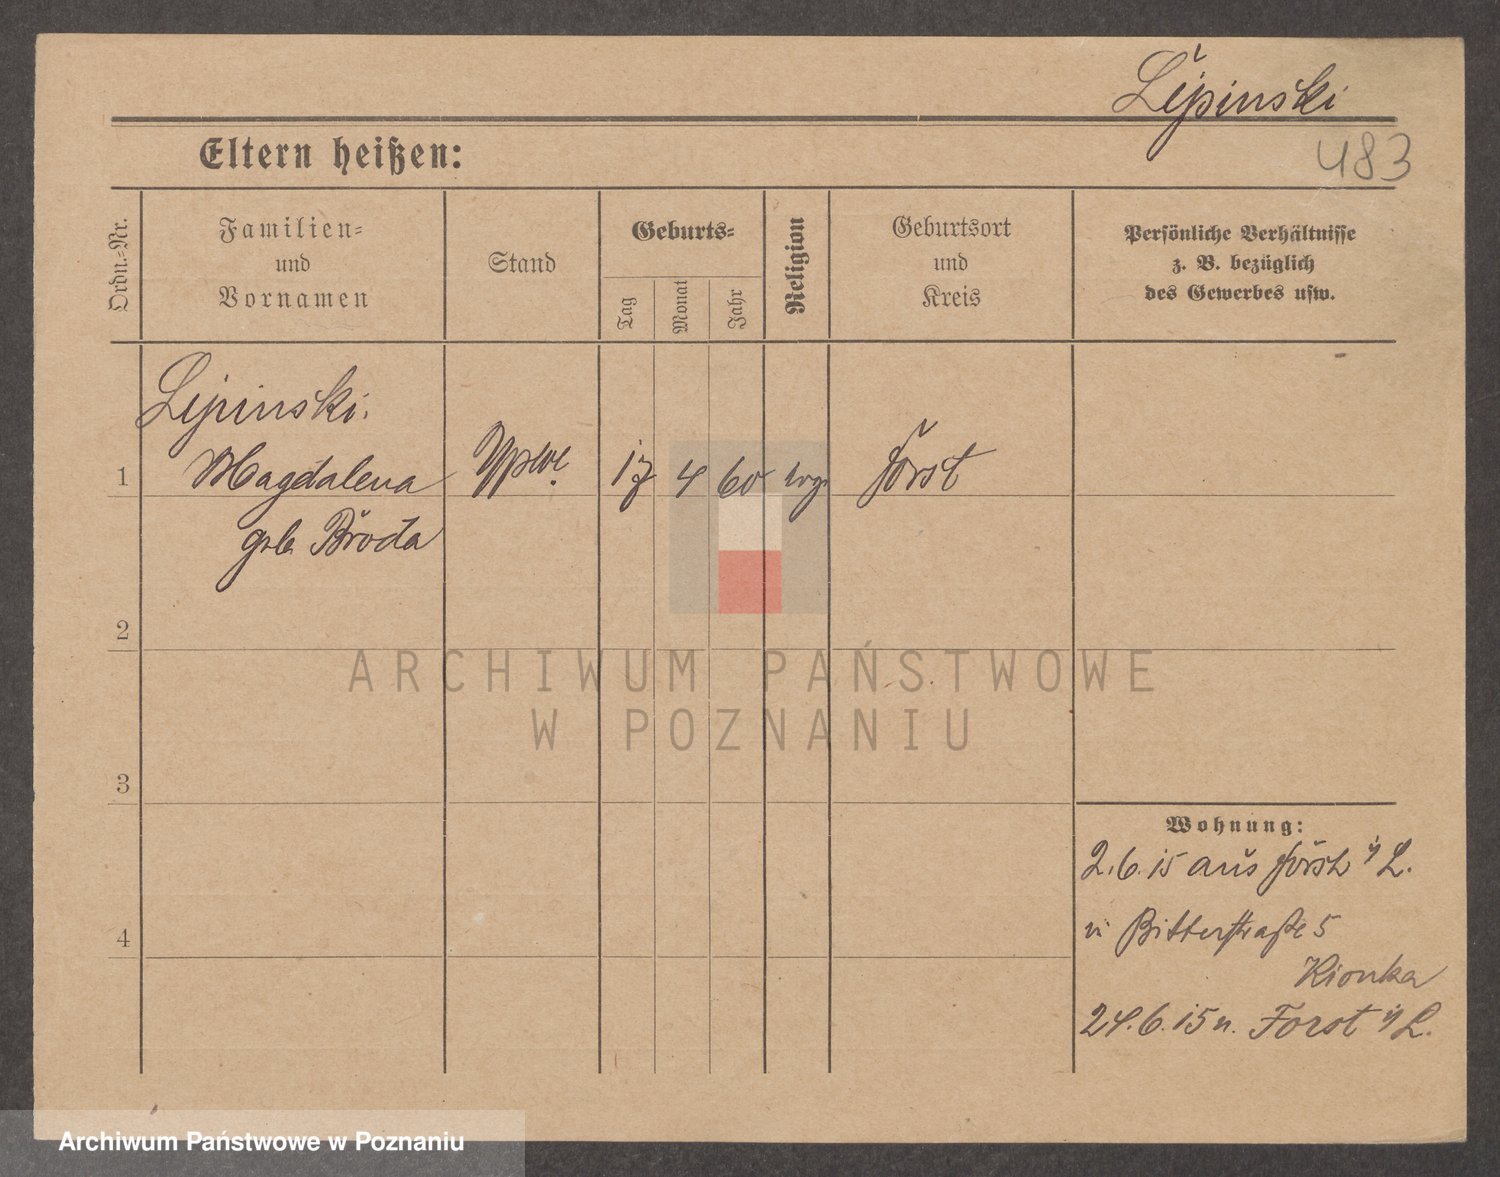 Lipinski
483
Eltern heißen:
Ordn.-Nr.
Familien-
und
Vornamen
Stand
Geburts-
Tag
Monat
Jahr
Religion
Geburtsort
und
Kreis
Persönliche Verhältnisse
z. B. bezüglich
des Gewerbes usw.
Lipinski.
1 Magdalena 17 4 60 Forst
geb Broda
2
3
4
Wohnung:
2.6.15 aus Forst i/L.
n Bitterstraße 5
Kionka
24.6.15 n. Forst i/L.
ARCHIWUM PAŃSTWOWE
W POZNANIU
Archiwum Państwowe w Poznaniu